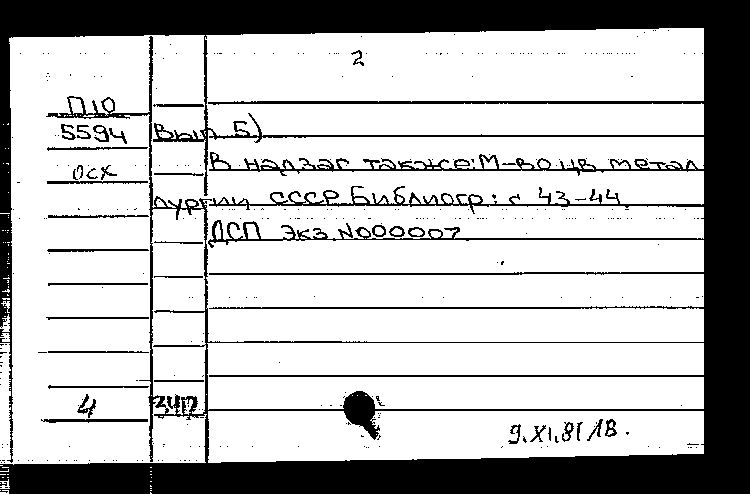 2
П10
5594 Вып. 5)
осх В надзаг. также: М-во цв. метал-
лургии СССР. Библиогр.: с. 43-44.
ДСП Экз. N000007
4
9.XI.81